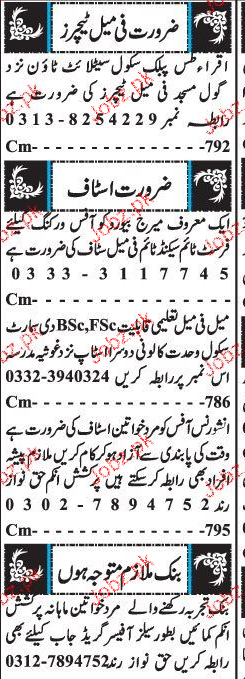 ضرورت فی میل ٹیچرز
اقراء طس پبلک سکول سٹیلائٹ ٹاؤن نزد
گول مسجد فی میل ٹیچرز کی ضرورت ہے
رابطہ نمبر 0313-8254229
Cm- - - - - - - - - - - - - - - - - - -792
ضرورت اسٹاف
ایک معروف میرج بیورو کو آفس ورکنگ کیلئے
فرسٹ ٹائم سیکنڈ ٹائم فی میل سٹاف کی ضرورت ہے
0333-3117745
Cm- - - - - - - - - - - - - - - - - - -
میل فی میل تعلیمی قابلیت BSc,FSc دی سمارٹ
سکول وحدت کالونی دوسرا اسٹاپ نزد غوثیہ مدرسہ
اس نمبر پر رابطہ کریں 0332-3940324
Cm- - - - - - - - - - - - - - - - - - -786
انشورنس آفس کو مرد خواتین اسٹاف کی ضرورت ہے
وقت کی پابندی سے آزاد ہو کر کام کریں ملازم پیشہ
افراد بھی رابطہ کر سکتے ہیں پرکشش انکم حق نواز
رند 0302-7894752
Cm- - - - - - - - - - - - - - - - - - -795
بنک ملازم متوجہ ہوں
بنک تجربہ رکھنے والے مرد خواتین ماہانہ پرکشش
انکم کمائیں بطور سیلز آفیسر گریڈ جاب کیلئے بھی
رابطہ کریں حق نواز رند 0312-7894752